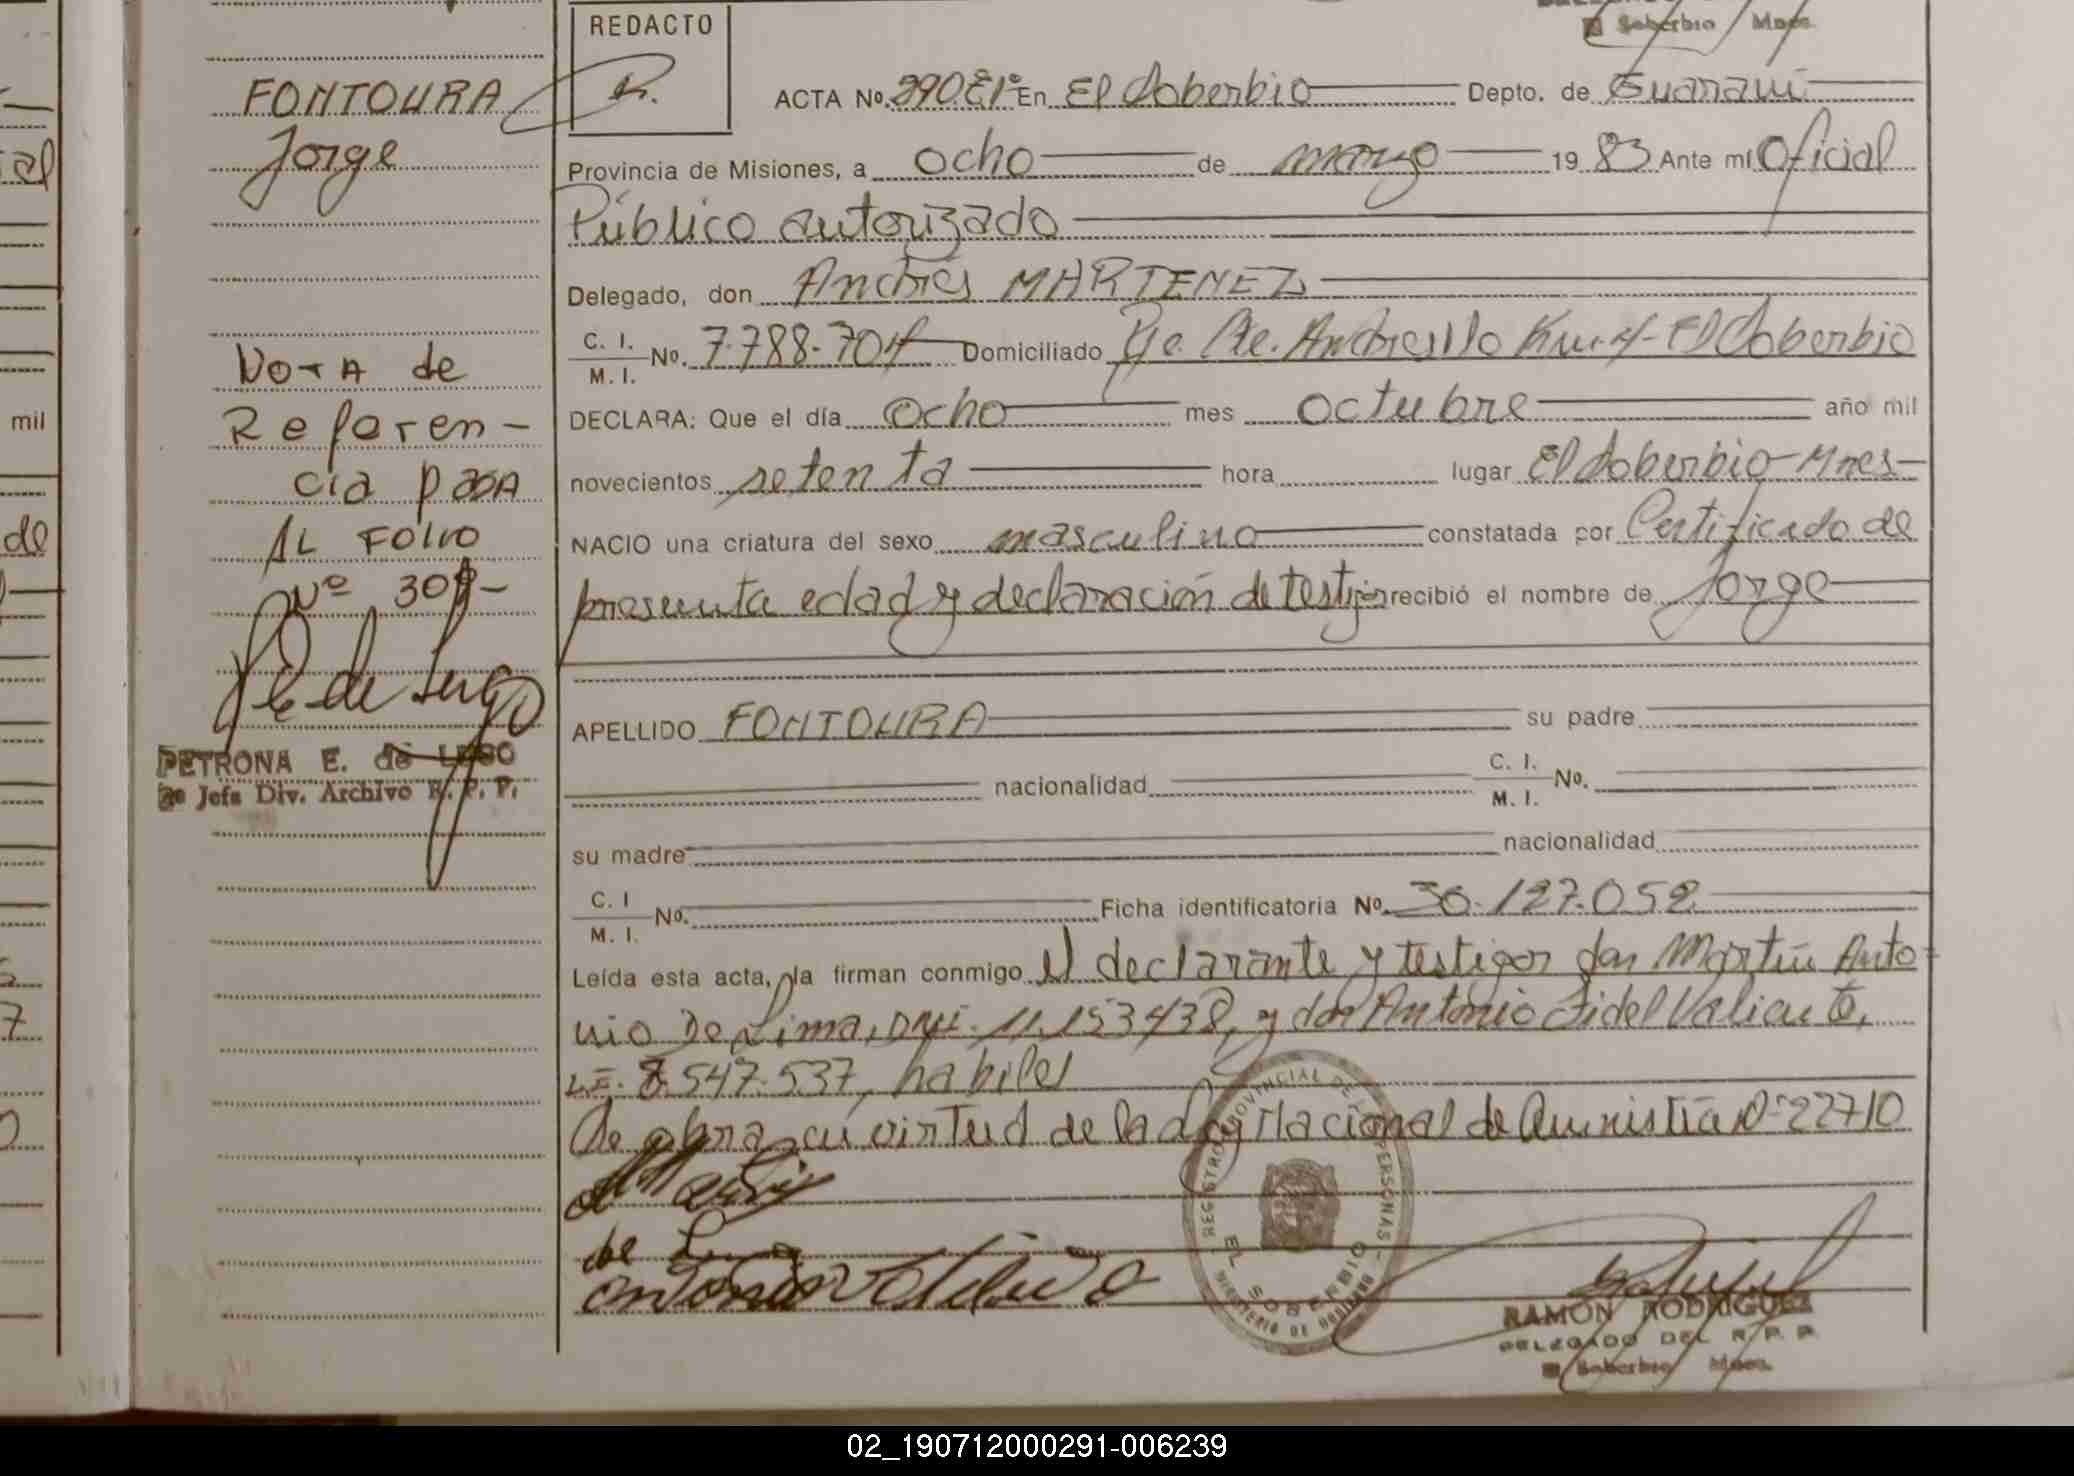 Soberbio Mnes.
REDACTO
FONTOURA
Jorge
ACTA No. 290 E1° En El Soberbio Depto. de Guaraní
Provincia de Misiones, a ocho de marzo 1983 Ante mí Oficial
Público autorizado
Delegado, don Andrés MARTENEZ
C. I. M. I. No. 7.788.704 Domiciliado Pje. Cte. Andresito Km. 4- El Soberbio
DECLARA: Que el día ocho mes octubre año mil
novecientos setenta hora lugar El Soberbio-Mnes-
NACIO una criatura del sexo masculino constatada por Certificado de
presunta edad y declaración de testigos recibió el nombre de Jorge
APELLIDO FONTOURA su padre
nacionalidad C. I. M. I. No.
su madre nacionalidad
C. I M. I. No. Ficha identificatoria No. 30.127.052
Leída esta acta, la firman conmigo el declarante y testigos don Martín Anto-
nio De Lima, DNI. 11.153438, y don Antonio Fidel Valiente,
L.E. 8.547.537, habiles
Se labra en virtud de la Ley Nacional de Amnistía N° 22710
de Lima
REGISTRO PROVINCIAL DE LAS PERSONAS
EL SOBERBIO
MINISTERIO DE GOBIERNO
RAMON RODRIGUEZ
DELEGADO DEL R. P. P.
El Soberbio Mnes.
Nota de
Referen-
cia pasa
AL FOLIO
Nº 309-
PETRONA E. de LUGO
2º Jefa Div. Archivo R. P. P.
mil
de
02_190712000291-006239